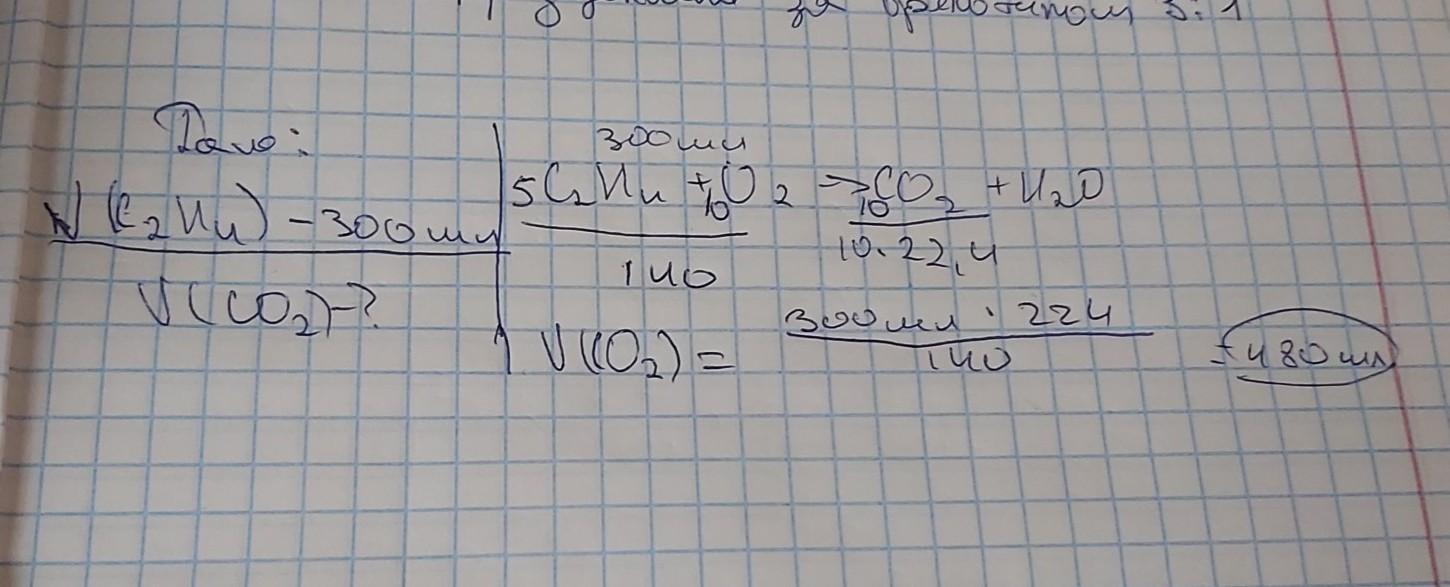 за 5:1
Дано:
V(C₂H₄) - 300 мл
V(CO₂)-?
300 мл
5C₂H₄ + 10O₂ → 10CO₂ + H₂O
140
10·22,4
V(CO₂) = 300 мл · 224 / 140 = 480 мл